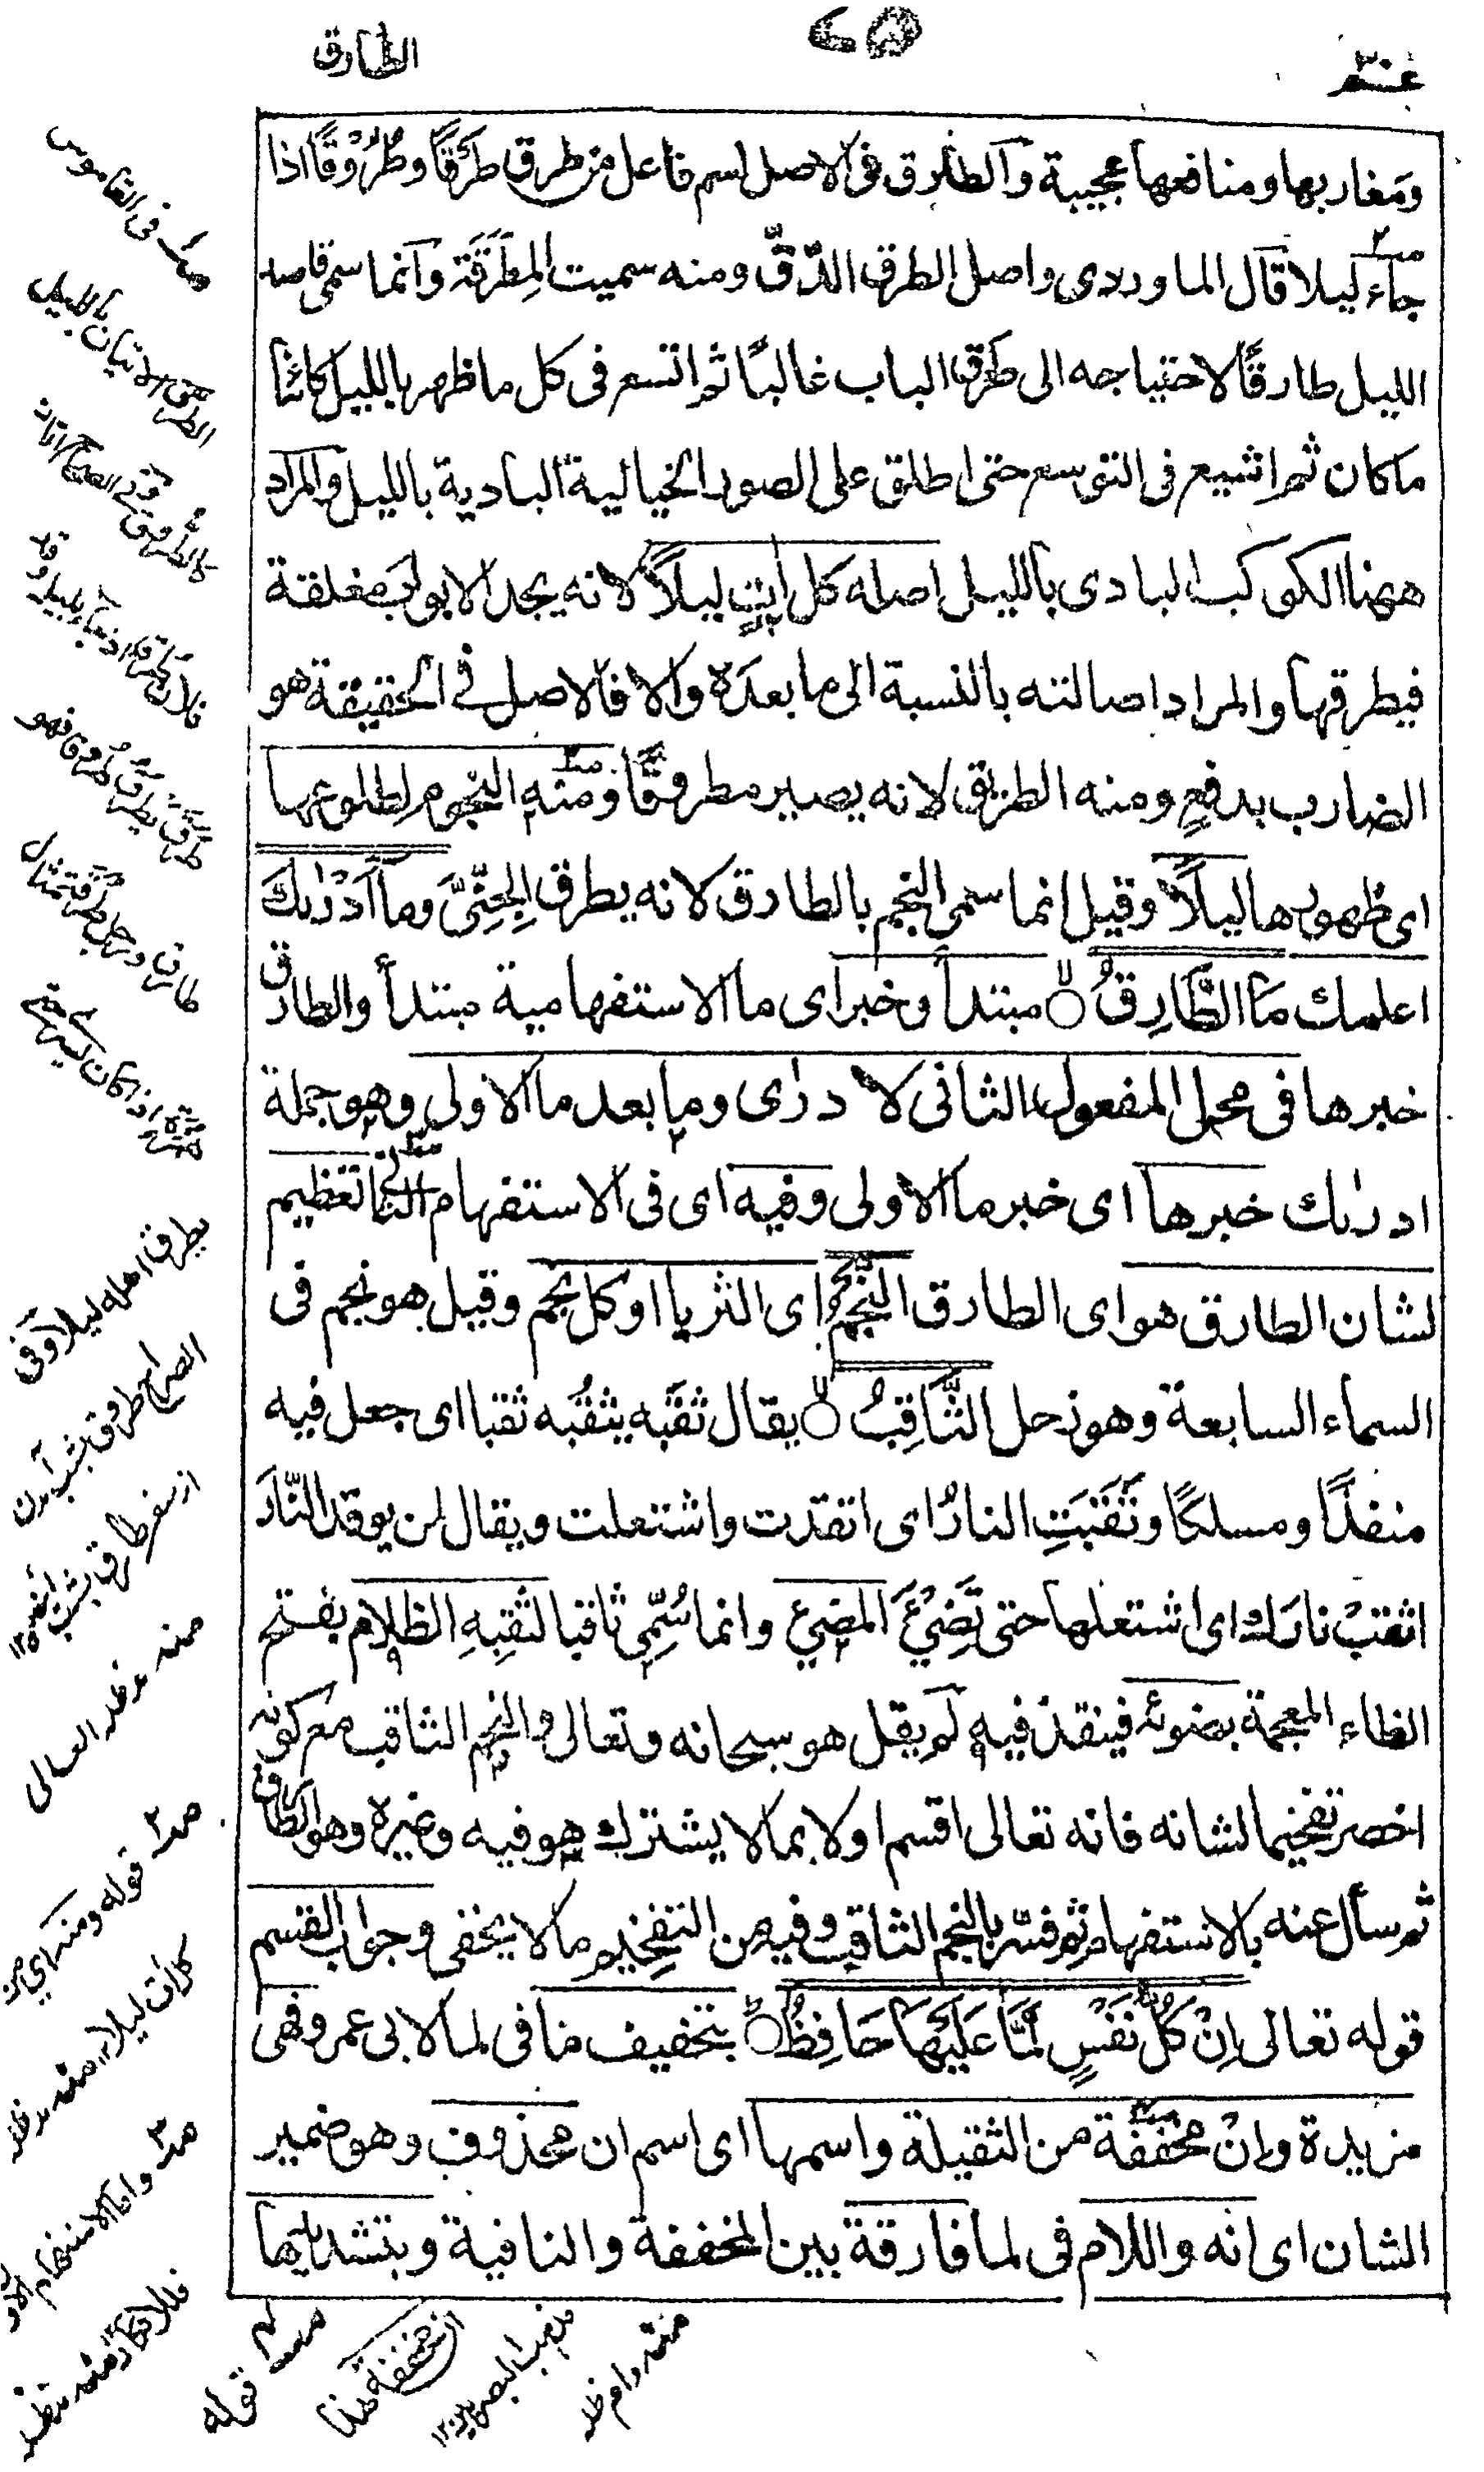 عم ٣٠
٧٥
الطارق
ومغاربها ومنافعها عجيبة والطارق في الاصل اسم فاعل من طرق طَرْقًا وطُرُوْقًا اذا
جاء ليلا قال الماوردى واصل الطرق الدّقّ ومنه سميت المِطْرَقَة وانما سمى قاصد
الليل طارقًا لاحتياجه الى طرق الباب غالبًا ثم اتسع فى كل ما ظهر بالليل كائنا
ما كان ثم اشيع فى التوسع حتى اطلق على الصور الخيالية البادية بالليل والمراد
ههنا الكوكب البادى بالليل اصله كل اٰتٍ ليلاً لانه يجد الابواب مغلقة
فيطرقها والمراد اصالته بالنسبة الى ما بعده والا فالاصل فى الحقيقة هو
الضارب بدفعٍ ومنه الطريق لانه يصير مطروقًا ومنه النجوم لطلوعها
اى ظهورها ليلاً وقيل انما سمى النجم بالطارق لانه يطرق الجِنِّىَّ وَمَآ اَدْرٰىكَ
اعلمك مَا الطَّارِقُ مبتدأ وخبر اى ما الاستفهامية مبتدأ والطارق
خبرها فى محل المفعول الثانى لادرٰى وما بعد ما الاولى وهو جملة
ادرٰىك خبرها اى خبر ما الاولى وفيه اى فى الاستفهام الثانى تعظيم
لشان الطارق هو اى الطارق النَّجْمُ اى الثريا او كل نجم وقيل هو نجم فى
السماء السابعة وهو زحل الثَّاقِبُ يقال ثقَبَه يثقُبه ثقبا اى جعل فيه
منفذًا ومسلكًا وثَقَبَتِ النارُ اى اتقدت واشتعلت ويقال لمن يوقد النّارَ
اثقبْ نارك اى اشتعلها حتى تَضِيْءَ المضىء وانما سُمِّى ثاقبا لثقبِهِ الظلام بفتح
الظاء المعجمة بضوئه فينفذ فيه لم يقل هو سبحانه وتعالى والنجم الثاقب مع كونه
اخصر تفخيما لشانه فانه تعالى اقسم اولا بما لا يشترك هو فيه وغيره وهو الطارق
ثم سأل عنه بالاستفهام ثم فسّره بالنجم الثاقب وفيه من التفخيم ما لا يخفى وجواب القسم
قوله تعالى اِنْ كُلُّ نَفْسٍ لَمَّا عَلَيْهَا حَافِظٌ بتخفيف ما فى لما لابى عمرو فهى
مزيدة واِنْ مخففة من الثقيلة واسمها اى اسم ان محذوف وهو ضمير
الشان اى انه واللام فى لما فارقة بين المخففة والنافية وبتشديدها
فى القاموس
الطرق الاتيان بالليل
كالطروق وفى الصحاح اتانا
فلان طروقا اذا جاء بليل وقد
طرق يطرق طروقا فهو
طارق ورجل طرقة مثال
همزة اذا كان يسرى حتى
يطرق اهله ليلا وفى
الصراح طروق بشب آمدن
از سفر طارق بشب آينده ١٢
منه مد ظله العالى
قوله ومنه اى من
كل آت ليلا ١٢ منه مد ظله
واما الاستفهام الاول
فللانكار ١٢ منه
قوله
مخففة هذا
مذهب البصريين ١٢
منه دام ظله